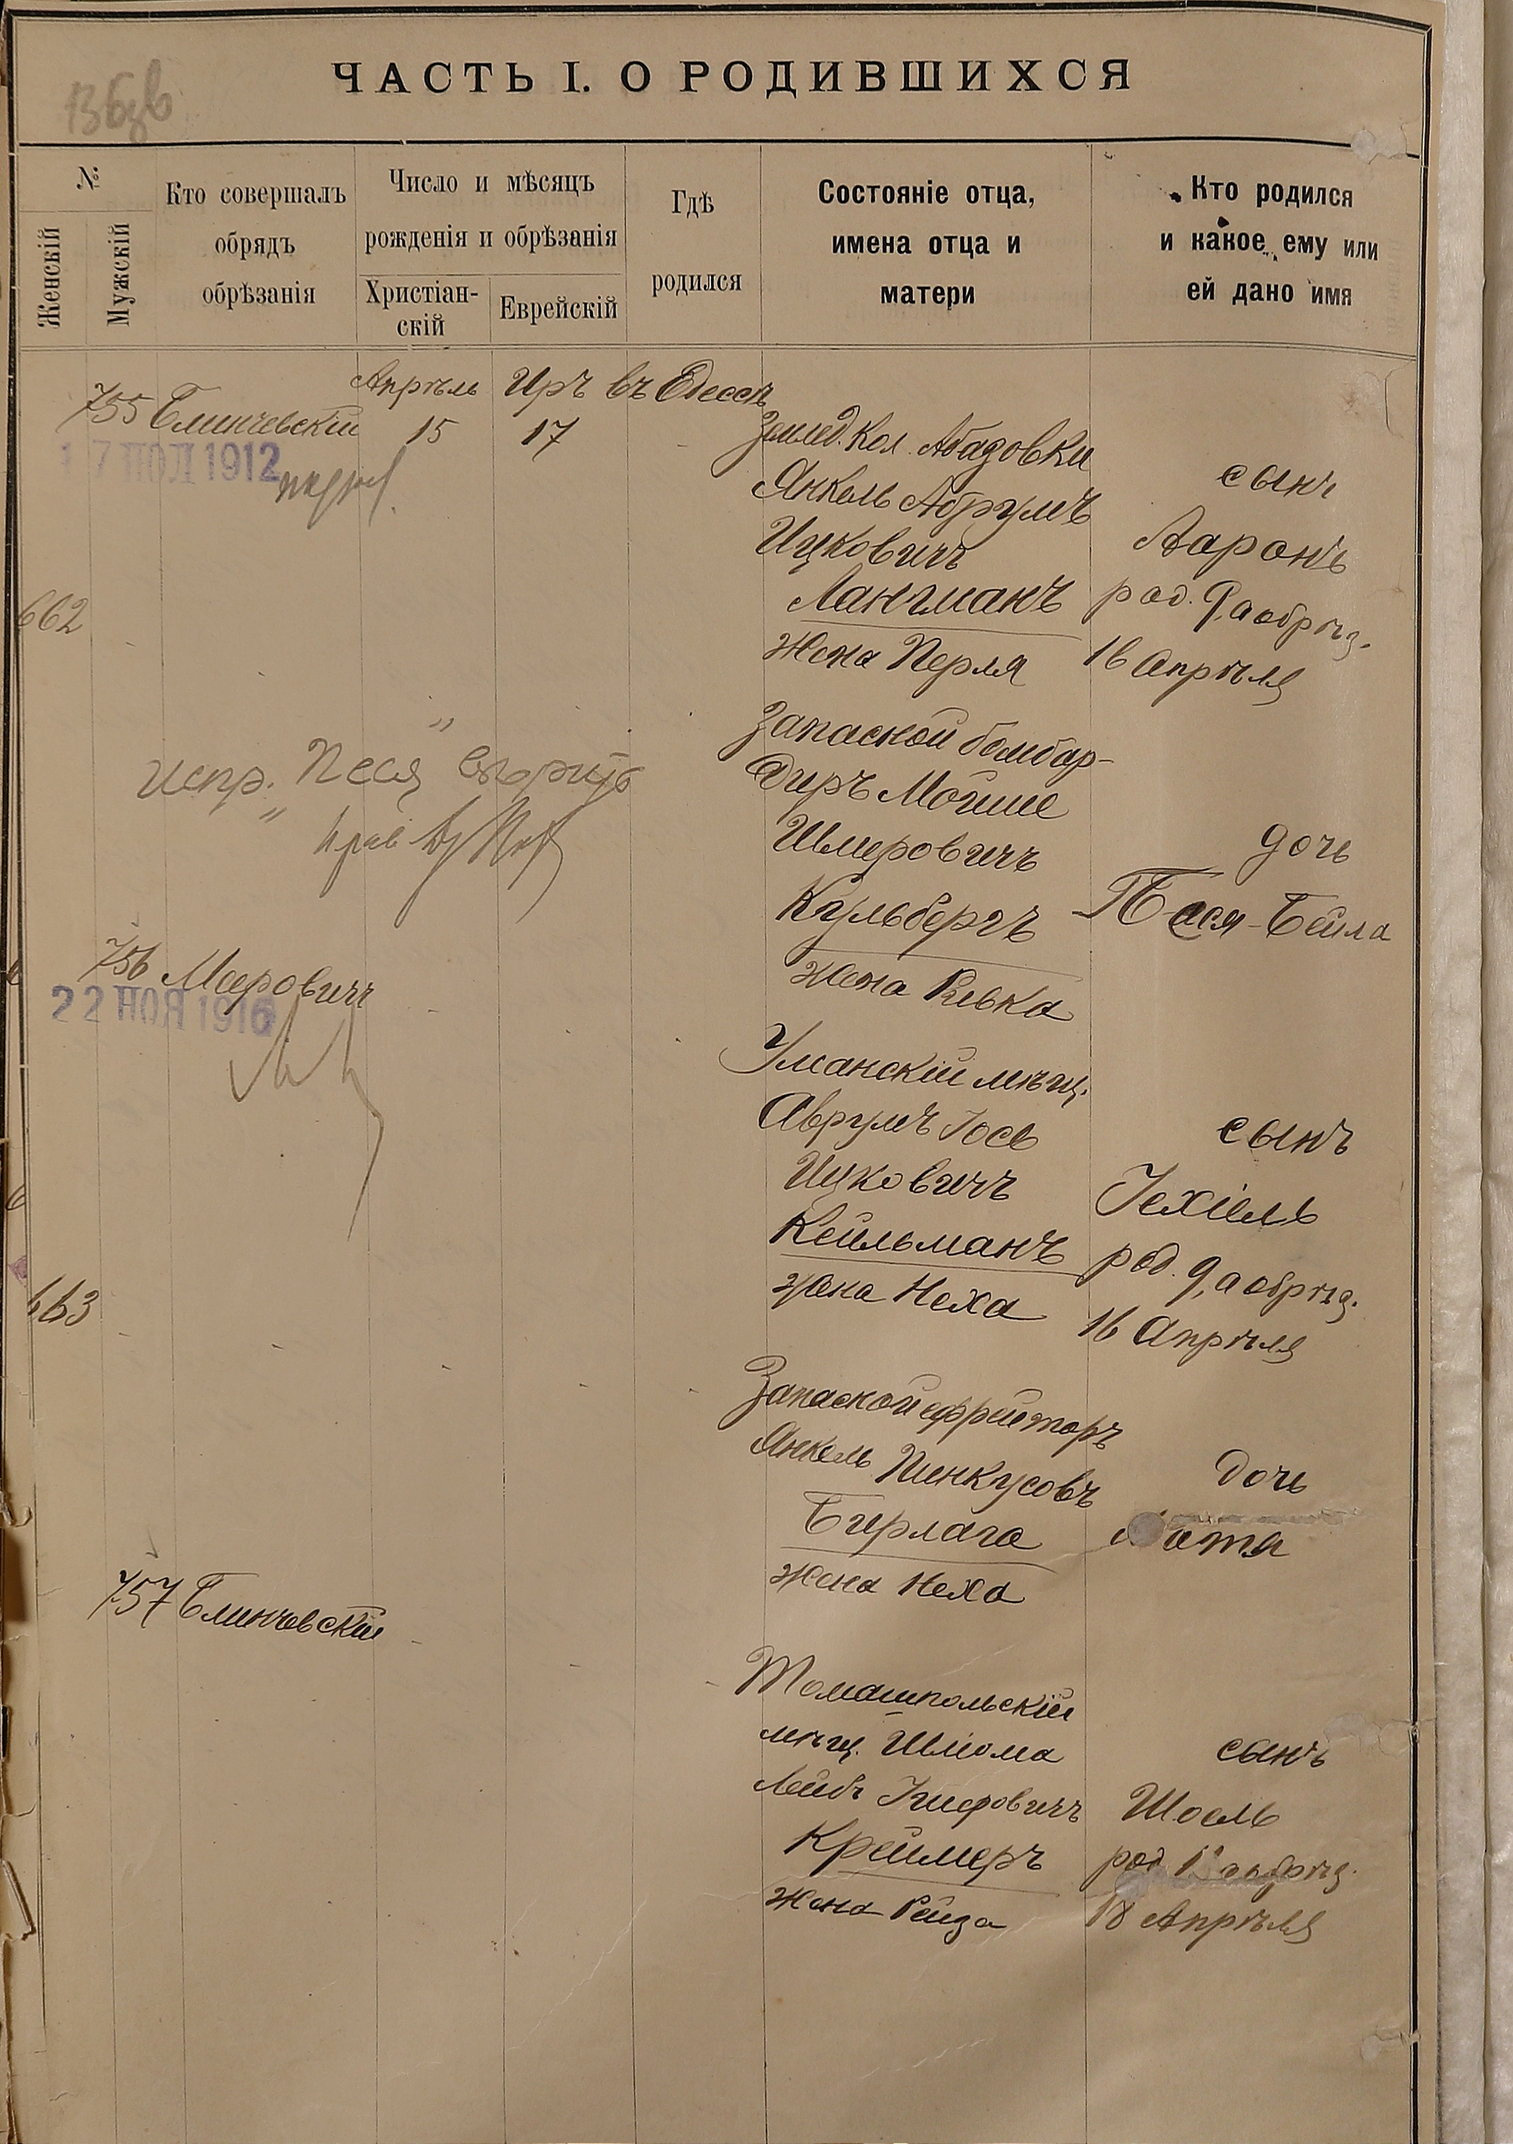 ЧАСТЬ I. О РОДИВШИХСЯ
№
Женскій
Мужскій
Кто совершалъ
обрядъ
обрѣзанія
Число и мѣсяцъ
рожденія и обрѣзанія
Христіан-
скій
Еврейскій
Гдѣ
родился
Состояніе отца,
имена отца и
матери
Кто родился
и какое ему или
ей дано имя
Апрѣль Иръ въ Одессѣ
755 Блинчевскій 15 17
17 1912
Землед. Кол. Абазовки
Янкель Абрумъ
Ицковичъ
Лангманъ
жена Перля
сынъ
Ааронъ
род. 9, а обрѣз.
16 Апрѣля
662
Запасной бомбар-
диръ Мойше
Шмеровичъ
Кульбергъ
жена Ривка
дочь
Песя-Бейла
испр. "Песя"
756 Мееровичъ
22 НОЯ 1916
Уманскій мѣщ.
Аврумъ Іось
Ицковичъ
Кейльманъ
жена Неха
сынъ
Іехіель
род. 9, а обрѣз.
16 Апрѣля
663
Запасной ефрейторъ
Янкель Пинкусовъ
Бирлага
жена Неха
дочь
757 Блинчевскій
Томашпольскій
мѣщ. Шліома
Лейбъ Іосифовичъ
Креймеръ
жена Рейза
сынъ
Шоель
род. обрѣз.
18 Апрѣля